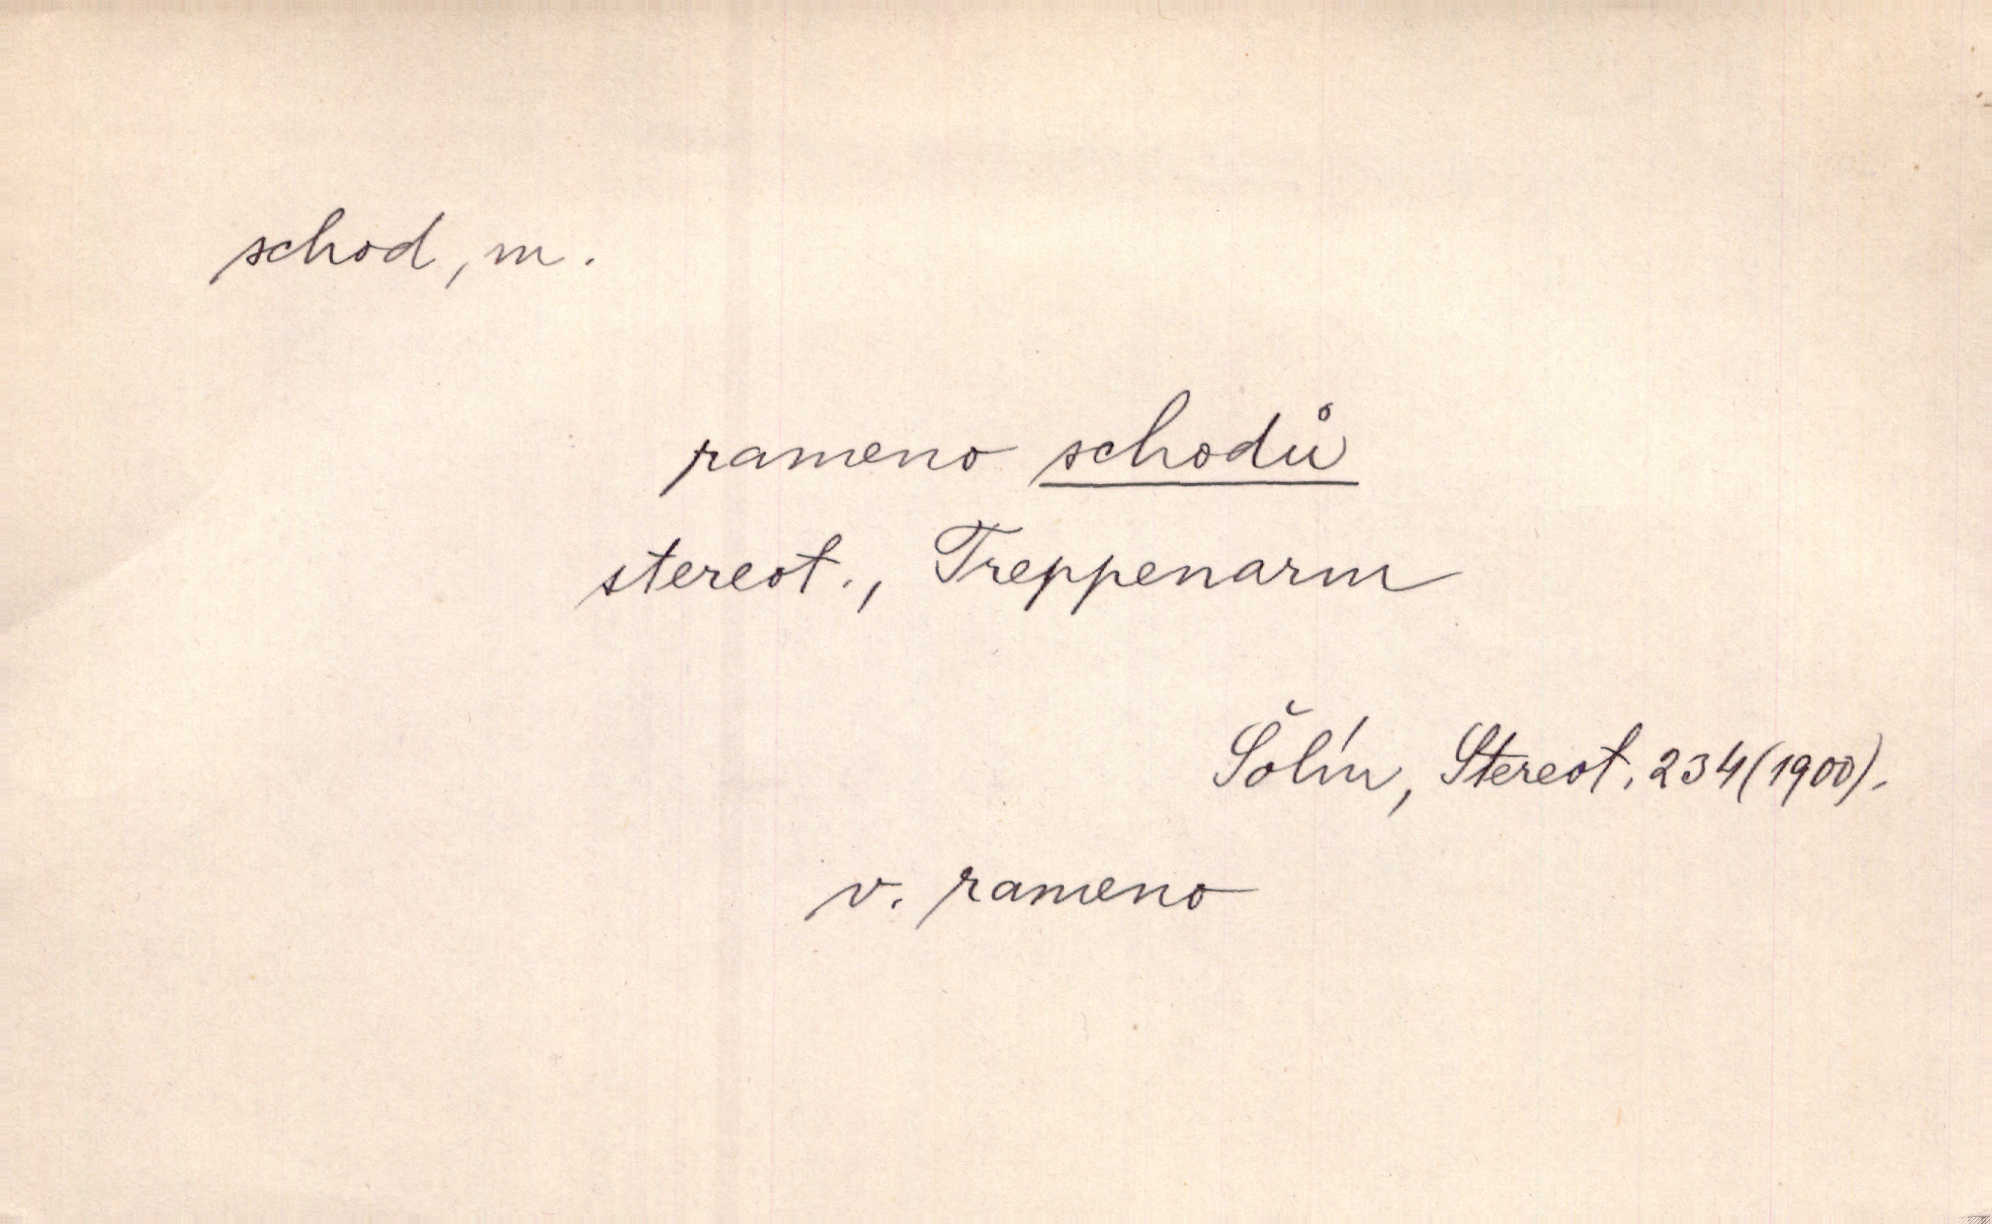 schod, m.
rameno schodů
stereot., Treppenarm
Šolín, Stereot. 234 (1900).
v. rameno